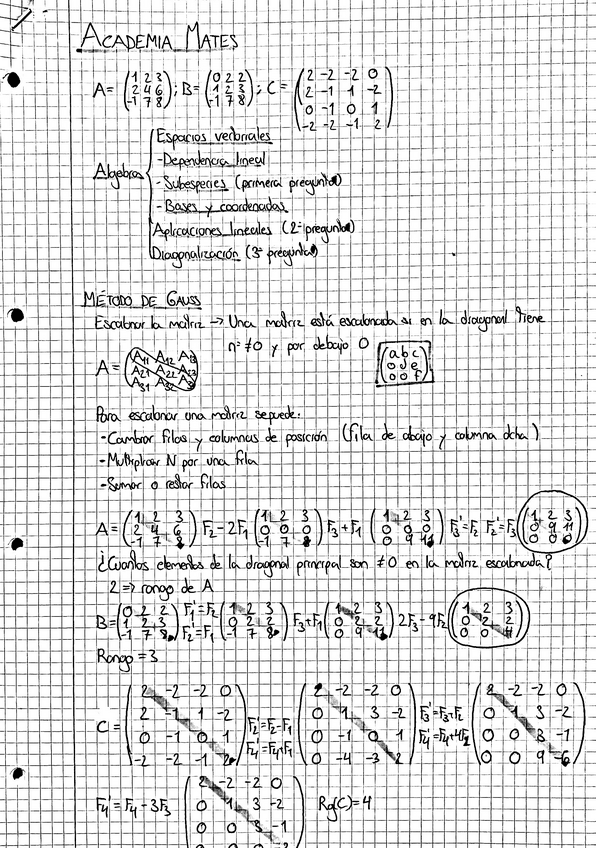 ACADEMIA MATES
A= (1 2 3; 2 4 6; -1 7 8); B= (0 2 2; 1 2 3; -1 7 8); C= (2 -2 -2 0; 2 -1 1 -2; 0 -1 0 1; -2 -2 -1 2)
Algebra
Espacios vectoriales
-Dependencia lineal
-Subespecies (primera pregunta)
-Bases y coordenadas
Aplicaciones lineales (2ª pregunta)
Diagonalización (3ª pregunta)
MÉTODO DE GAUSS
Escalonar la matriz → Una matriz está escalonada si en la diagonal tiene
nº ≠0 y por debajo 0 (a b c; 0 d e; 0 0 f)
A = (A11 A12 A13; A21 A22 A23; A31 A32 A33)
Para escalonar una matriz se puede:
-Cambiar filas y columnas de posición (fila de abajo y columna dcha)
-Multiplicar N por una fila
-Sumar o restar filas
A= (1 2 3; 2 4 6; -1 7 8) F2-2F1 (1 2 3; 0 0 0; -1 7 8) F3+F1 (1 2 3; 0 0 0; 0 9 11) F3'=F2 F2'=F3 (1 2 3; 0 9 11; 0 0 0)
¿Cuantos elementos de la diagonal principal son ≠0 en la matriz escalonada?
2 => rango de A
B= (0 2 2; 1 2 3; -1 7 8) F1'=F2 F2'=F1 (1 2 3; 0 2 2; -1 7 8) F3+F1 (1 2 3; 0 2 2; 0 9 11) 2F3-9F2 (1 2 3; 0 2 2; 0 0 4)
Rango =3
C= (2 -2 -2 0; 2 -1 1 -2; 0 -1 0 1; -2 -2 -1 2) F2'=F2-F1 F4'=F4+F1 (2 -2 -2 0; 0 1 3 -2; 0 -1 0 1; 0 -4 -3 2) F3'=F3+F2 F4'=F4+4F2 (2 -2 -2 0; 0 1 3 -2; 0 0 3 -1; 0 0 9 -6)
F4'=F4-3F3 (2 -2 -2 0; 0 1 3 -2; 0 0 3 -1; 0 0 0 -3) Rg(C)=4